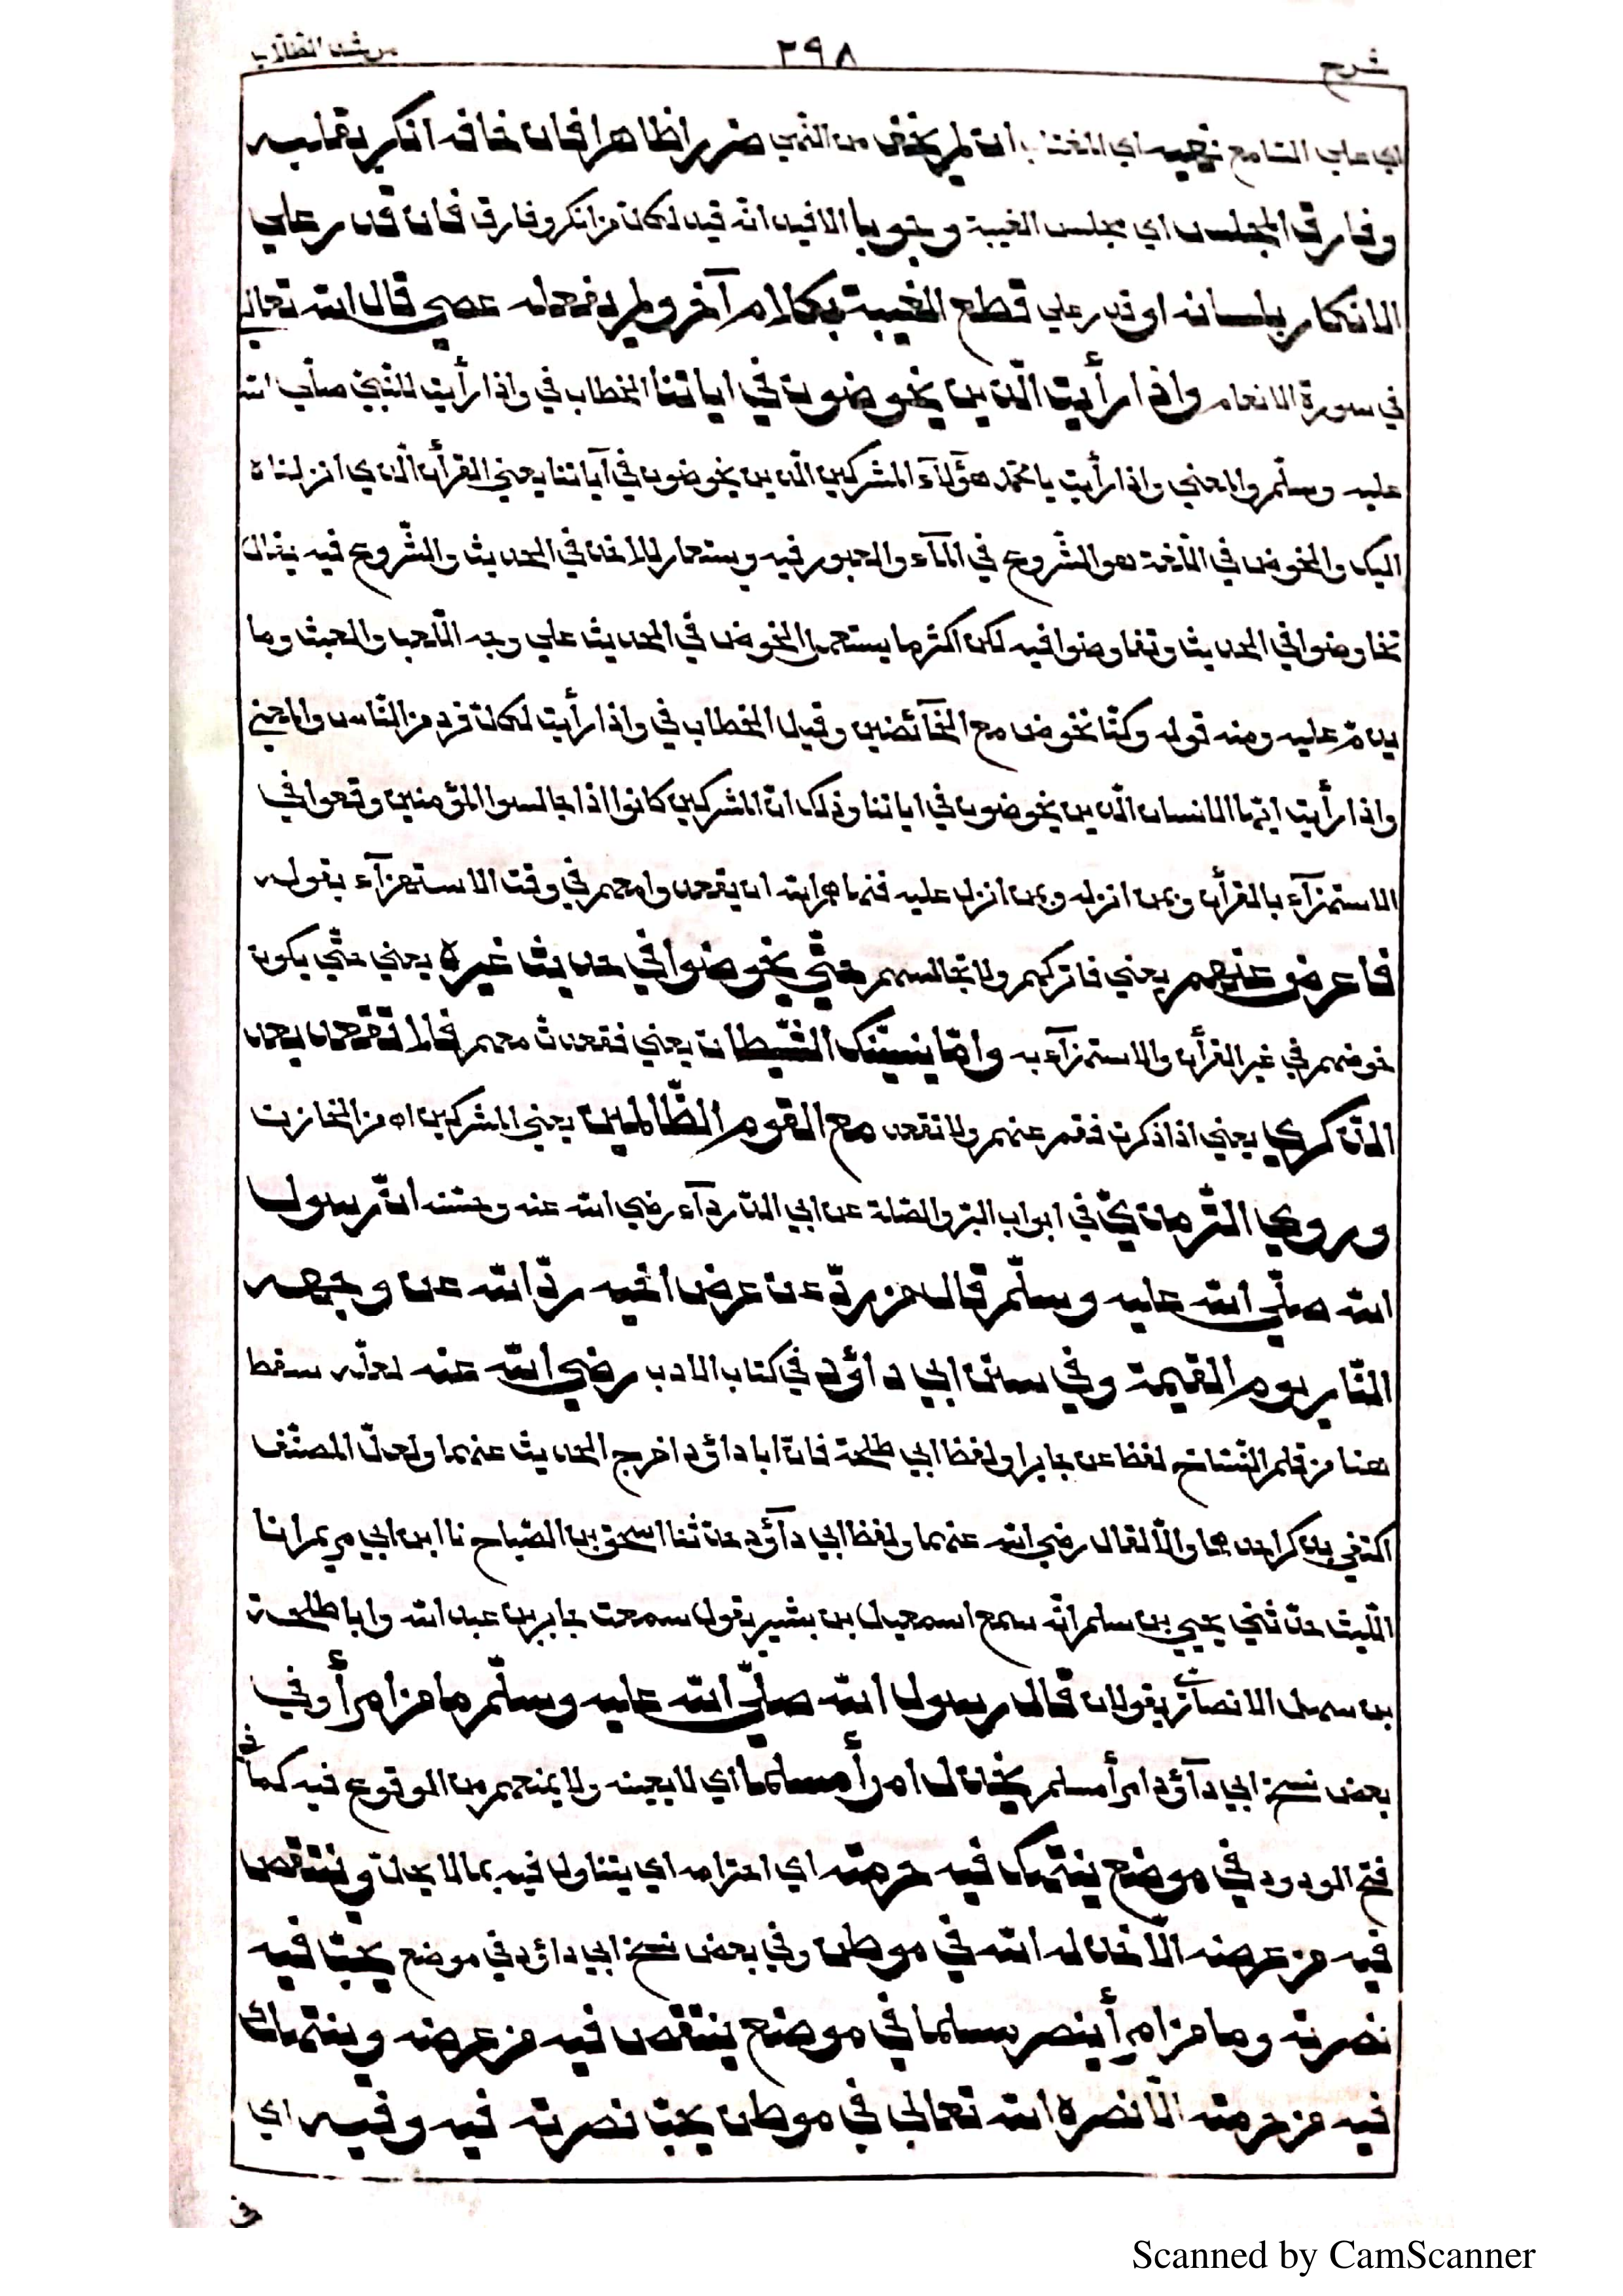 شرح ٢٩٨ مرشد الطلاب
اي علي السامع نهيه اي المغتاب ان لم يخف من النهي ضررا ظاهرا فان خافه انكر بقلبه
وفارق المجلس اي مجلس الغيبة وجوبا الافيد انه قيد لكل من انكر وفارق فان قدر علي
الانكار بلسانه او قدر علي قطع الغيبة بكلام آخر ولم يفعله عصي قال الله تعالي
في سورة الانعام واذا رأيت الّذين يخوضون في اياتنا الخطاب في واذا رأيت للنّبيّ صلّي الله
عليه وسلّم والمعني واذا رأيت يا محمّد هؤلآء المشركين الّذين يخوضون في آياتنا يعني القرأن الّذي انزلناه
اليك والخوض في اللّغة هو الشّروع في المآء والعبور فيه ويستعار للاخذ في الحديث والشّروع فيه يقال
تخاوضوا في الحديث وتفاوضوا فيه لكن اكثر ما يستعمل الخوض في الحديث علي وجه اللّعب والعبث وما
يذمّ عليه ومنه قوله وكنّا نخوض مع الخآئضين وقيل الخطاب في واذا رأيت لكلّ فرد من النّاس والمعني
واذا رأيت ايّها الانسان الّذين يخوضون في اياتنا وذلك انّ المشركين كانوا اذا جالسوا المؤمنين وقعوا في
الاستهزآء بالقرأن وبمن انزله وبمن انزل عليه فنهاهم الله ان يقعدوا معهم في وقت الاستهزآء بقوله
فاعرض عنهم يعني فاتركهم ولا تجالسهم حتّي يخوضوا في حديث غيره يعني حتّي يكون
خوضهم في غير القرأن والاستهزآء به وامّا ينسينّك الشّيطان يعني فقعدت معهم فلا تقعد بعد
الذّكري يعني اذا ذكرت فقم عنهم ولا تقعد مع القوم الظّالمين يعني المشركين اه من الخازن
وروي التّرمذيّ في ابواب البرّ والصّلة عن ابي الدّردآء رضي الله عنه وحسّنه انّ رسول
الله صلّي الله عليه وسلّم قال من ردّ عن عرض اخيه ردّ الله عن وجهه
النّار يوم القيمة وفي سنن ابي داؤد في كتاب الادب رضي الله عنه لعلّه سقط
هنا من قلم النّسّاخ لفظ عن جابر او لفظ ابي طلحة فانّ ابا داؤد اخرج الحديث عنهما ولعلّ المصنّف
اكتفي بذكر احدهما والّا لقال رضي الله عنهما ولفظ ابي دآؤد حدّثنا اسحق بن الصّباح نا ابن ابي مريم انا
اللّيث حدّثني يحيي بن سليم انّه سمع اسمعيل بن بشير يقول سمعت جابر بن عبد الله وابا طلحة
بن سهل الانصاريّ يقولان قال رسول الله صلّي الله عليه وسلّم ما من امرأ وفي
بعض نسخ ابي دآؤد امرأ مسلم يخذل امرأ مسلما اي لا يعينه ولا يمنعهم من الوقوع فيه كما في
فتح الودود في موضع ينتهك فيه حرمته اي احترامه اي يتناول فيه بما لا يحلّ وينتقص
فيه من عرضه الّا خذله الله في موطن وفي بعض نسخ ابي داؤد في موضع يحبّ فيه
نصرته وما من امرأ ينصر مسلما في موضع ينتقص فيه من عرضه وينتهك
فيه من حرمته الّا نصره الله تعالي في موطن يحبّ نصرته فيه وفيه اي
في
Scanned by CamScanner